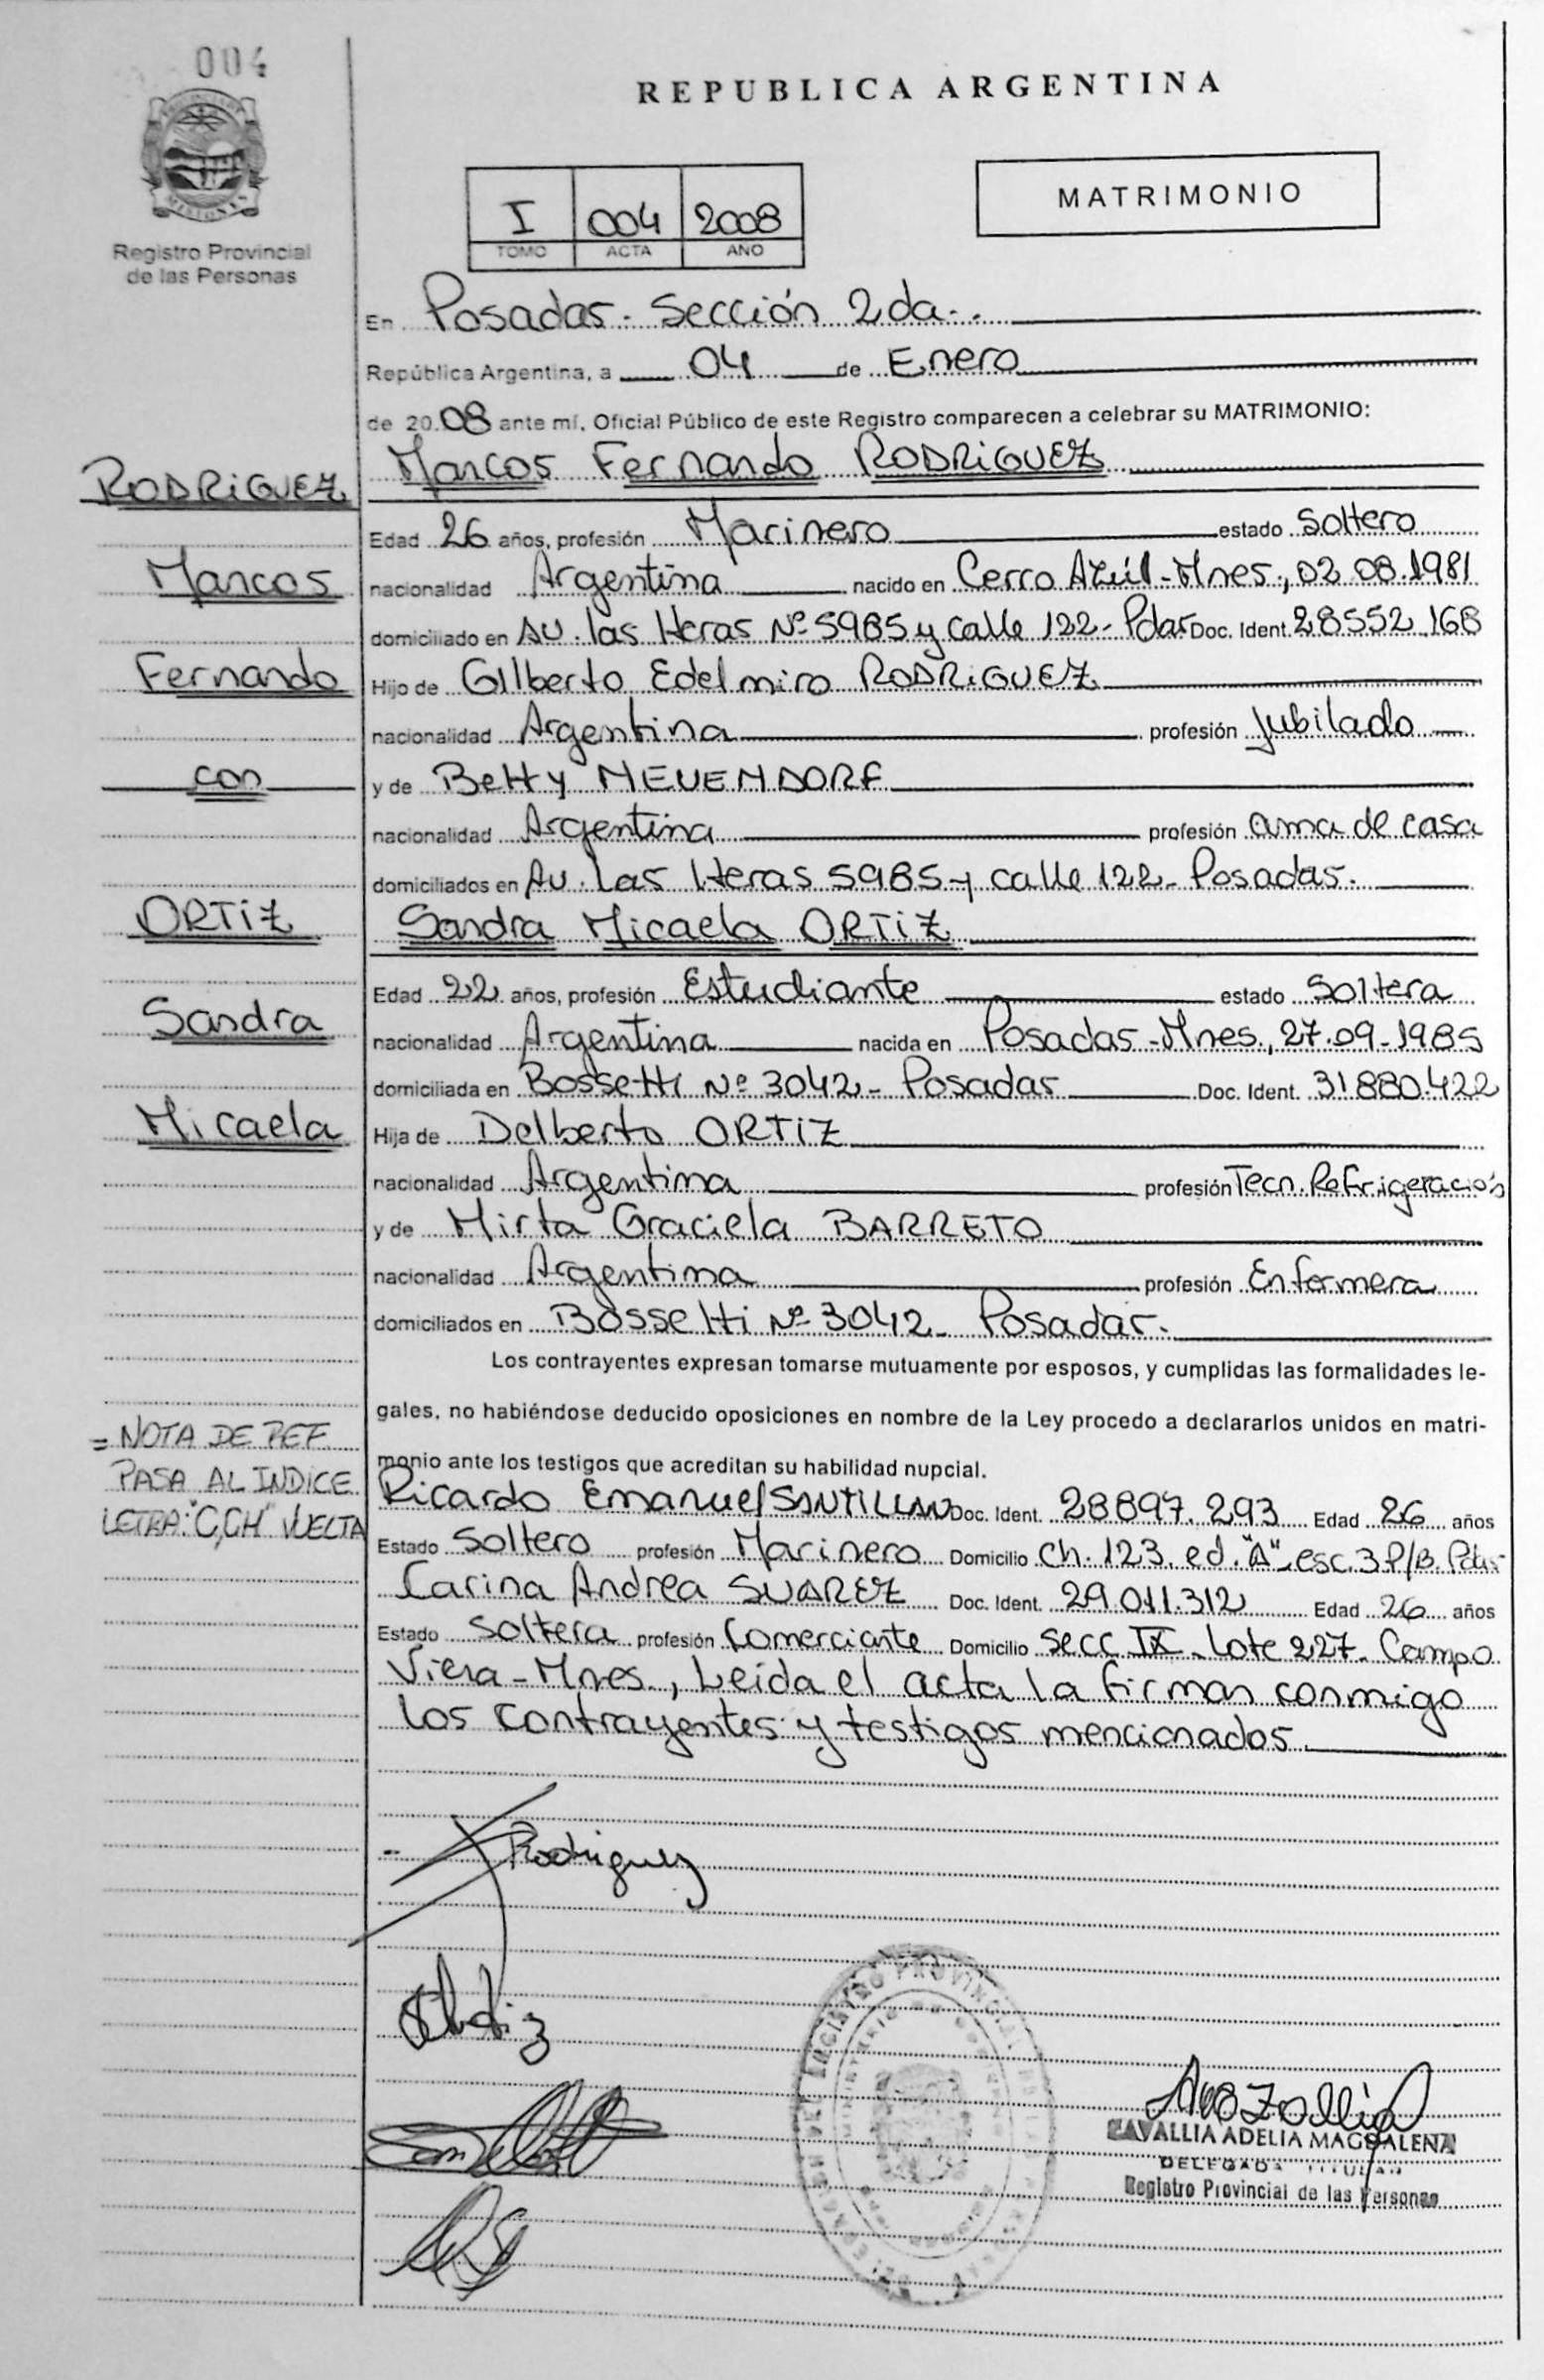 004
REPUBLICA ARGENTINA
MISIONES
Registro Provincial
de las Personas
I 004 2008
TOMO ACTA AÑO
MATRIMONIO
En Posadas - Sección 2da.
República Argentina, a 04 de Enero
de 2008 ante mí, Oficial Público de este Registro comparecen a celebrar su MATRIMONIO:
Marcos Fernando RODRIGUEZ
Edad 26 años, profesión Marinero estado Soltero
nacionalidad Argentina nacido en Cerro Azúl - Mnes., 02.08.1981
domiciliado en Av. las Heras Nº 5985 y calle 122 - Pdas Doc. Ident. 28552.168
Hijo de Gilberto Edelmiro RODRIGUEZ
nacionalidad Argentina profesión Jubilado
y de Betty NEUENDORF
nacionalidad Argentina profesión ama de casa
domiciliados en Av. Las Heras 5985 y calle 122 - Posadas.
Sandra Micaela ORTIZ
Edad 22 años, profesión Estudiante estado Soltera
nacionalidad Argentina nacida en Posadas - Mnes., 27.09.1985
domiciliada en Bossetti Nº 3042 - Posadas Doc. Ident. 31880.422
Hija de Delberto ORTIZ
nacionalidad Argentina profesión Tecn. Refrigeración
y de Mirta Graciela BARRETO
nacionalidad Argentina profesión Enfermera
domiciliados en Bossetti Nº 3042 - Posadas.
Los contrayentes expresan tomarse mutuamente por esposos, y cumplidas las formalidades le-
gales, no habiéndose deducido oposiciones en nombre de la Ley procedo a declararlos unidos en matri-
monio ante los testigos que acreditan su habilidad nupcial.
Ricardo Emanuel SANTILLAN Doc. Ident. 28897.293 Edad 26 años
Estado Soltero profesión Marinero Domicilio Ch. 123. ed. "A" esc. 3 P/B. Pdas
Carina Andrea SUAREZ Doc. Ident. 29.011.312 Edad 26 años
Estado Soltera profesión Comerciante Domicilio Secc IX - Lote 227 - Campo
Viera - Mnes., Leída el acta la firman conmigo
los contrayentes y testigos mencionados
RODRIGUEZ
Marcos
Fernando
con
ORTIZ
Sandra
Micaela
= NOTA DE REF.
PASA AL INDICE
LETRA: "C, CH" VUELTA
Rodriguez
CAVALLIA ADELIA MAGDALENA
DELEGADA TITULAR
Registro Provincial de las Personas